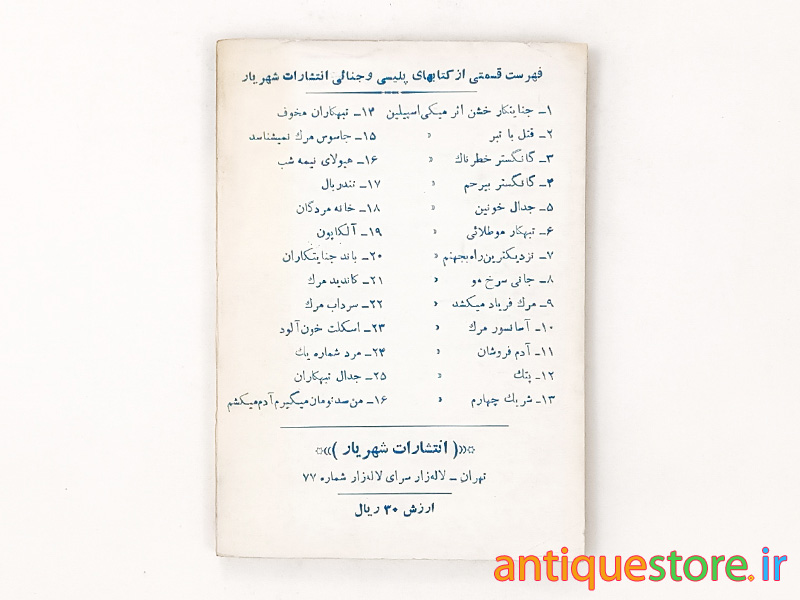 فهرست قسمتی از کتابهای پلیسی و جنائی انتشارات شهریار
۱ـ جنایتکار خشن اثر میکی اسپیلین
۲ـ قتل با تبر »
۳ـ گانگستر خطرناك »
۴ـ گانگستر بیرحم »
۵ـ جدال خونین »
۶ـ تبهکار موطلائی »
۷ـ نزدیکترین راه بجهنم »
۸ـ جانی سرخ مو »
۹ـ مرك فریاد میکشد »
۱۰ـ آسانسور مرك »
۱۱ـ آدم فروشان »
۱۲ـ پتك »
۱۳ـ شریك چهارم »
۱۴ـ تبهکاران مخوف
۱۵ـ جاسوس مرك نمیشناسد
۱۶ـ هیولای نیمه شب
۱۷ـ تندربال
۱۸ـ خانه مردگان
۱۹ـ آلکاپون
۲۰ـ باند جنایتکاران
۲۱ـ کاندید مرك
۲۲ـ سرداب مرك
۲۳ـ اسکلت خون آلود
۲۴ـ مرد شماره یك
۲۵ـ جدال تبهکاران
۱۶ـ من سدتومان میگیرم آدم میکشم
«( انتشارات شهریار )»
تهران ـ لاله‌زار سرای لاله‌زار شماره ۷۷
ارزش ۳۰ ریال
antiquestore.ir